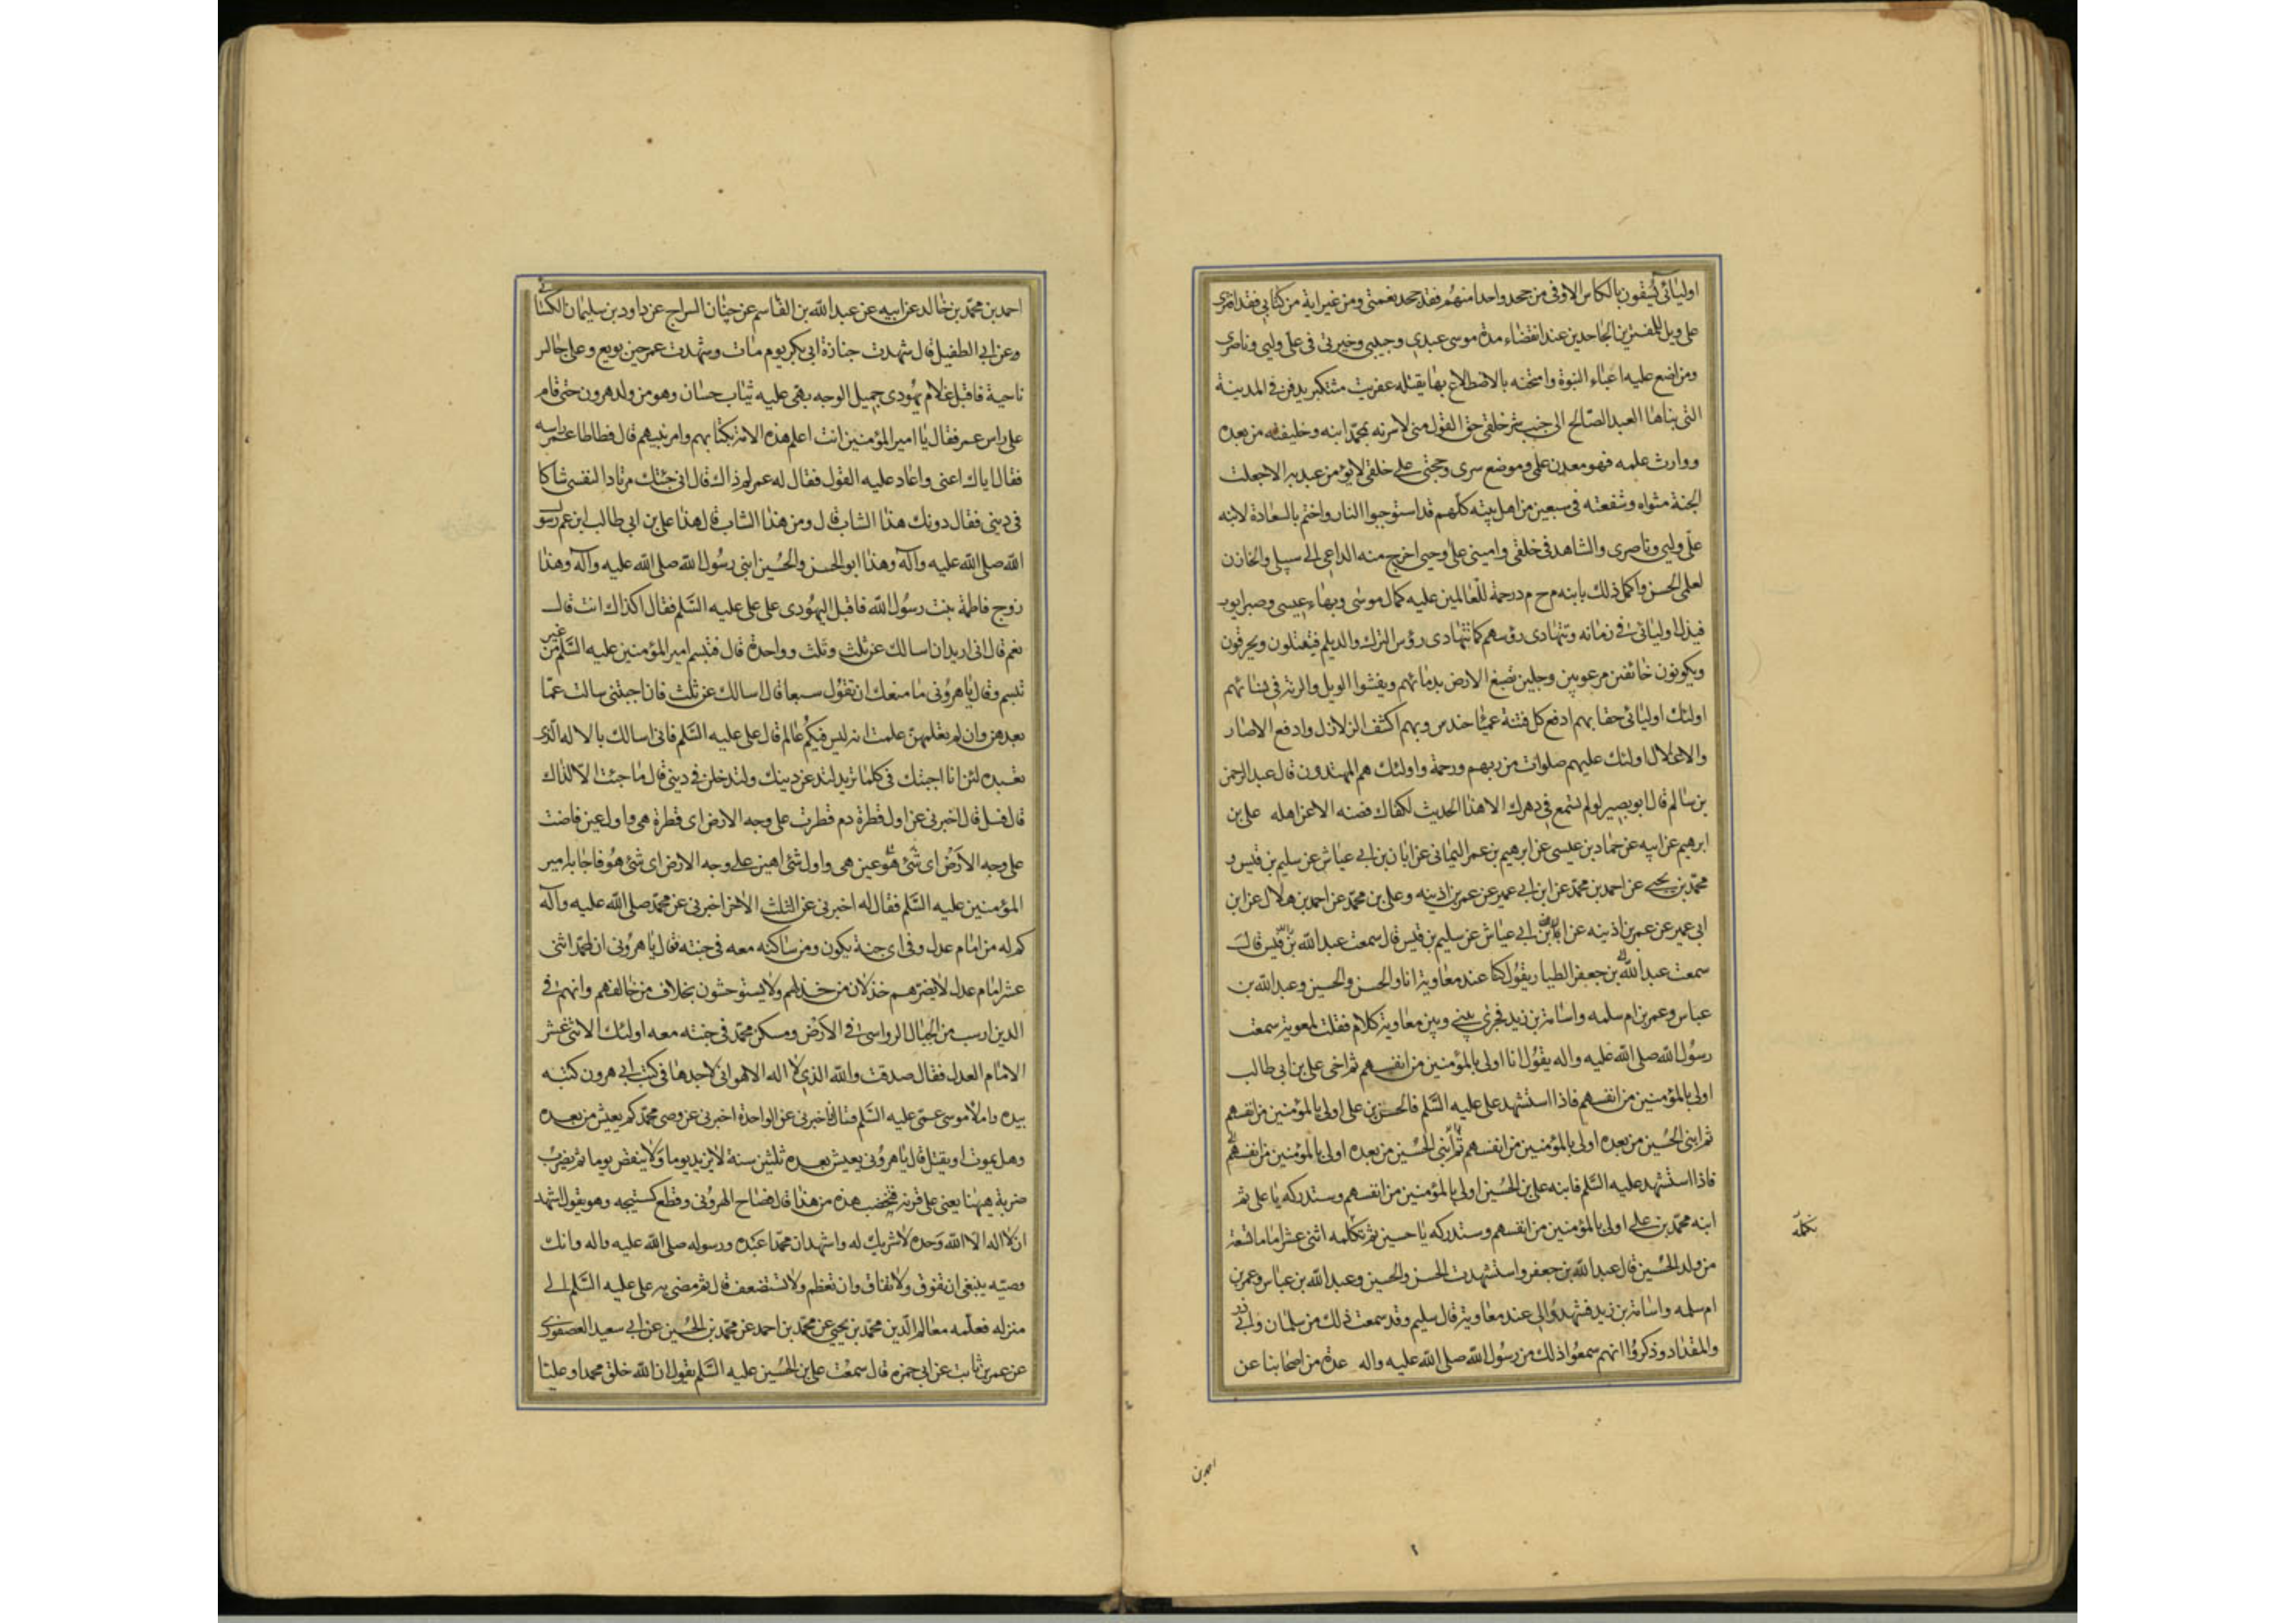 اوليائى يسقون بالكاس الاوفى من جحد واحدا منهم فقد جحد نعمتى ومن غير اية من كتابى فقد افترى
على ويل للمفترين الجاحدين عند انقضاء مدة موسى عبدى وحبيبى وخيرتى فى على وليى وناصرى
ومن اضع عليه اعباء النبوة وامتحنه بالاضطلاع بها يقتله عفريت مستكبر يدفن فى المدينة
التى بناها العبد الصالح الى جنب شر خلقى حق القول منى لاسرنه بمحمد ابنه وخليفته من بعده
ووارث علمه فهو معدن علمى وموضع سرى وحجتى على خلقى لا يؤمن عبد به الا جعلت
الجنة مثواه وشفعته فى سبعين من اهل بيته كلهم قد استوجبوا النار واختم بالسعادة لابنه
على وليى وناصرى والشاهد فى خلقى وامينى على وحيى اخرج منه الداعى الى سبيلى والخازن
لعلمى الحسن واكمل ذلك بابنه م ح م د رحمة للعالمين عليه كمال موسى وبهاء عيسى وصبر ايوب
فيذل اوليائى فى زمانه وتتهادى رؤسهم كما تتهادى رؤس الترك والديلم فيقتلون ويحرقون
ويكونون خائفين مرعوبين وجلين تصبغ الارض بدمائهم ويفشوا الويل والرنة فى نسائهم
اولئك اوليائى حقا بهم ادفع كل فتنة عمياء حندس وبهم اكشف الزلازل وادفع الاصار
والاغلال اولئك عليهم صلوات من ربهم ورحمة واولئك هم المهتدون قال عبد الرحمن
بن سالم قال ابو بصير لو لم تسمع فى دهرك الا هذا الحديث لكفاك فصنه الا عن اهله على بن
ابرهيم عن ابيه عن حماد بن عيسى عن ابرهيم بن عمر اليمانى عن ابان بن ابى عياش عن سليم بن قيس و
محمد بن يحيى عن احمد بن محمد عن ابن ابى عمير عن عمر بن اذينه وعلى بن محمد عن احمد بن هلال عن ابن
ابى عمير عن عمر بن اذينه عن ابان بن ابى عياش عن سليم بن قيس قال سمعت عبد الله بن قيس قال
سمعت عبد الله بن جعفر الطيار يقول كنا عند معاوية انا والحسن والحسين وعبد الله بن
عباس وعمر بن ام سلمه واسامة بن زيد فجرى بينى وبين معاوية كلام فقلت لمعوية سمعت
رسول الله صلى الله عليه واله يقول انا اولى بالمؤمنين من انفسهم ثم اخى على بن ابى طالب
اولى بالمؤمنين من انفسهم فاذا استشهد على عليه السلم فالحسن بن على اولى بالمؤمنين من انفسهم
ثم ابنى الحسين من بعده اولى بالمؤمنين من انفسهم ثم ابنى الحسين من بعده اولى بالمؤمنين من انفسهم
فاذا استشهد عليه السلم فابنه على بن الحسين اولى بالمؤمنين من انفسهم وستدركه يا على ثم
ابنه محمد بن على اولى بالمؤمنين من انفسهم وستدركه يا حسين ثم تكلمه اثنى عشر اماما تسعة
تكمله
من ولد الحسين قال عبد الله بن جعفر واستشهدت الحسن والحسين وعبد الله بن عباس وعمر بن
ام سلمه واسامة بن زيد فشهدوا لى عند معاوية قال سليم وقد سمعت ذلك من سلمان وابى ذر
والمقداد وذكروا انهم سمعوا ذلك من رسول الله صلى الله عليه واله عدة من اصحابنا عن
احمد بن
احمد بن محمد بن خالد عن ابيه عن عبد الله بن القاسم عن حيان السراج عن داود بن سليمان الكسائى
وعن ابى الطفيل قال شهدت جنازة ابى بكر يوم مات وشهدت عمر حين بويع وعلى جالس
ناحية فاقبل غلام يهودى جميل الوجه بهى عليه ثياب حسان وهو من ولد هرون حتى قام
على راس عمر فقال يا امير المؤمنين انت اعلم هذه الامة بكتابهم وامر نبيهم قال فطاطا عمر راسه
فقال اياك اعنى واعاد عليه القول فقال له عمر لم ذاك قال انى جئتك مرتادا لنفسى شاكا
فى دينى فقال دونك هذا الشاب قال ومن هذا الشاب قال هذا على بن ابى طالب ابن عم رسول
الله صلى الله عليه وآله وهذا ابو الحسن والحسين ابنى رسول الله صلى الله عليه وآله وهذا
زوج فاطمة بنت رسول الله فاقبل اليهودى على على عليه السلم فقال اكذاك انت قال
نعم قال انى اريد ان اسالك عن ثلث وثلث وواحدة قال فتبسم امير المؤمنين عليه السلم من غير
تبسم وقال يا هرونى ما منعك ان تقول سبعا قال اسالك عن ثلث فان اجبتنى سالت عما
بعدهن وان لم تعلمهن علمت انه ليس فيكم عالم قال على عليه السلم فانى اسالك بالاله الذى
تعبده لئن انا اجبتك فى كلما تريد لتدعن دينك ولتدخلن فى دينى قال ما جئت الا لذاك
قال فسل قال اخبرنى عن اول قطرة دم قطرت على وجه الارض اى قطرة هى واول عين فاضت
على وجه الارض اى عين هى واول شئ اهتز على وجه الارض اى شئ هو فاجابه امير
المؤمنين عليه السلم فقال له اخبرنى عن الثلث الاخر اخبرنى عن محمد صلى الله عليه وآله
كم له من امام عدل وفى اى جنة يكون ومن ساكنه معه فى جنته قال يا هرونى ان لمحمد اثنى
عشر امام عدل لا يضرهم خذلان من خذلهم ولا يستوحشون بخلاف من خالفهم وانهم فى
الدين ارسب من الجبال الرواسى فى الارض ومسكن محمد فى جنته معه اولئك الاثنى عشر
الامام العدل فقال صدقت والله الذى لا اله الا هو انى لاجدها فى كتب ابى هرون كتبه
بيده واملاه موسى عمى عليه السلم قال فاخبرنى عن الواحدة اخبرنى عن وصى محمد كم يعيش من بعده
وهل يموت او يقتل قال يا هرونى يعيش بعده ثلثين سنة لا يزيد يوما ولا ينقص يوما ثم يضرب
ضربة ههنا يعنى على قرنه فتخضب هذه من هذا قال فصاح الهرونى وقطع كستيجه وهو يقول اشهد
ان لا اله الا الله وحده لا شريك له واشهد ان محمدا عبده ورسوله صلى الله عليه واله وانك
وصيه ينبغى ان تفوق ولا تفاق وان تعظم ولا تستضعف قال ثم مضى به على عليه السلم الى
منزله فعلمه معالم الدين محمد بن يحيى عن محمد بن احمد عن محمد بن الحسين عن ابى سعيد العصفورى
عن عمر بن ثابت عن ابى حمزه قال سمعت على بن الحسين عليه السلم يقول ان الله خلق محمدا وعليا